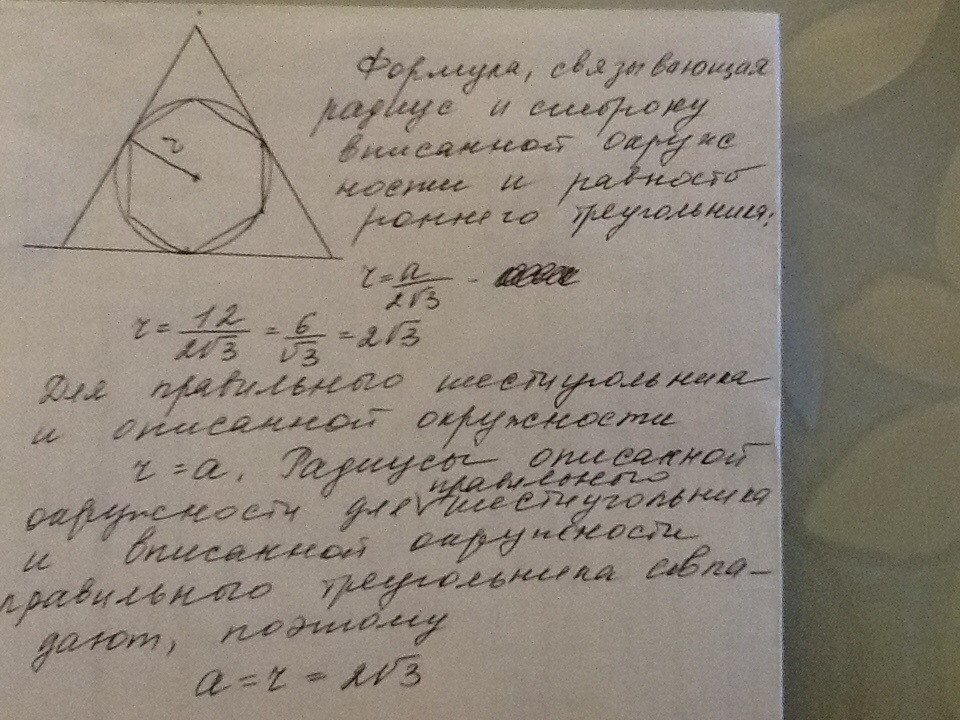 r
Формула, связывающая
радиус и сторону
вписанной окруж
ности и равносто
роннего треугольника:
r = a/2√3 -
r = 12/2√3 = 6/√3 = 2√3
Для правильного шестиугольника
и описанной окружности
r = a. Радиусы описанной
правильного
окружности для √ шестиугольника
и вписанной окружности
правильного треугольника совпа-
дают, поэтому
a = r = 2√3